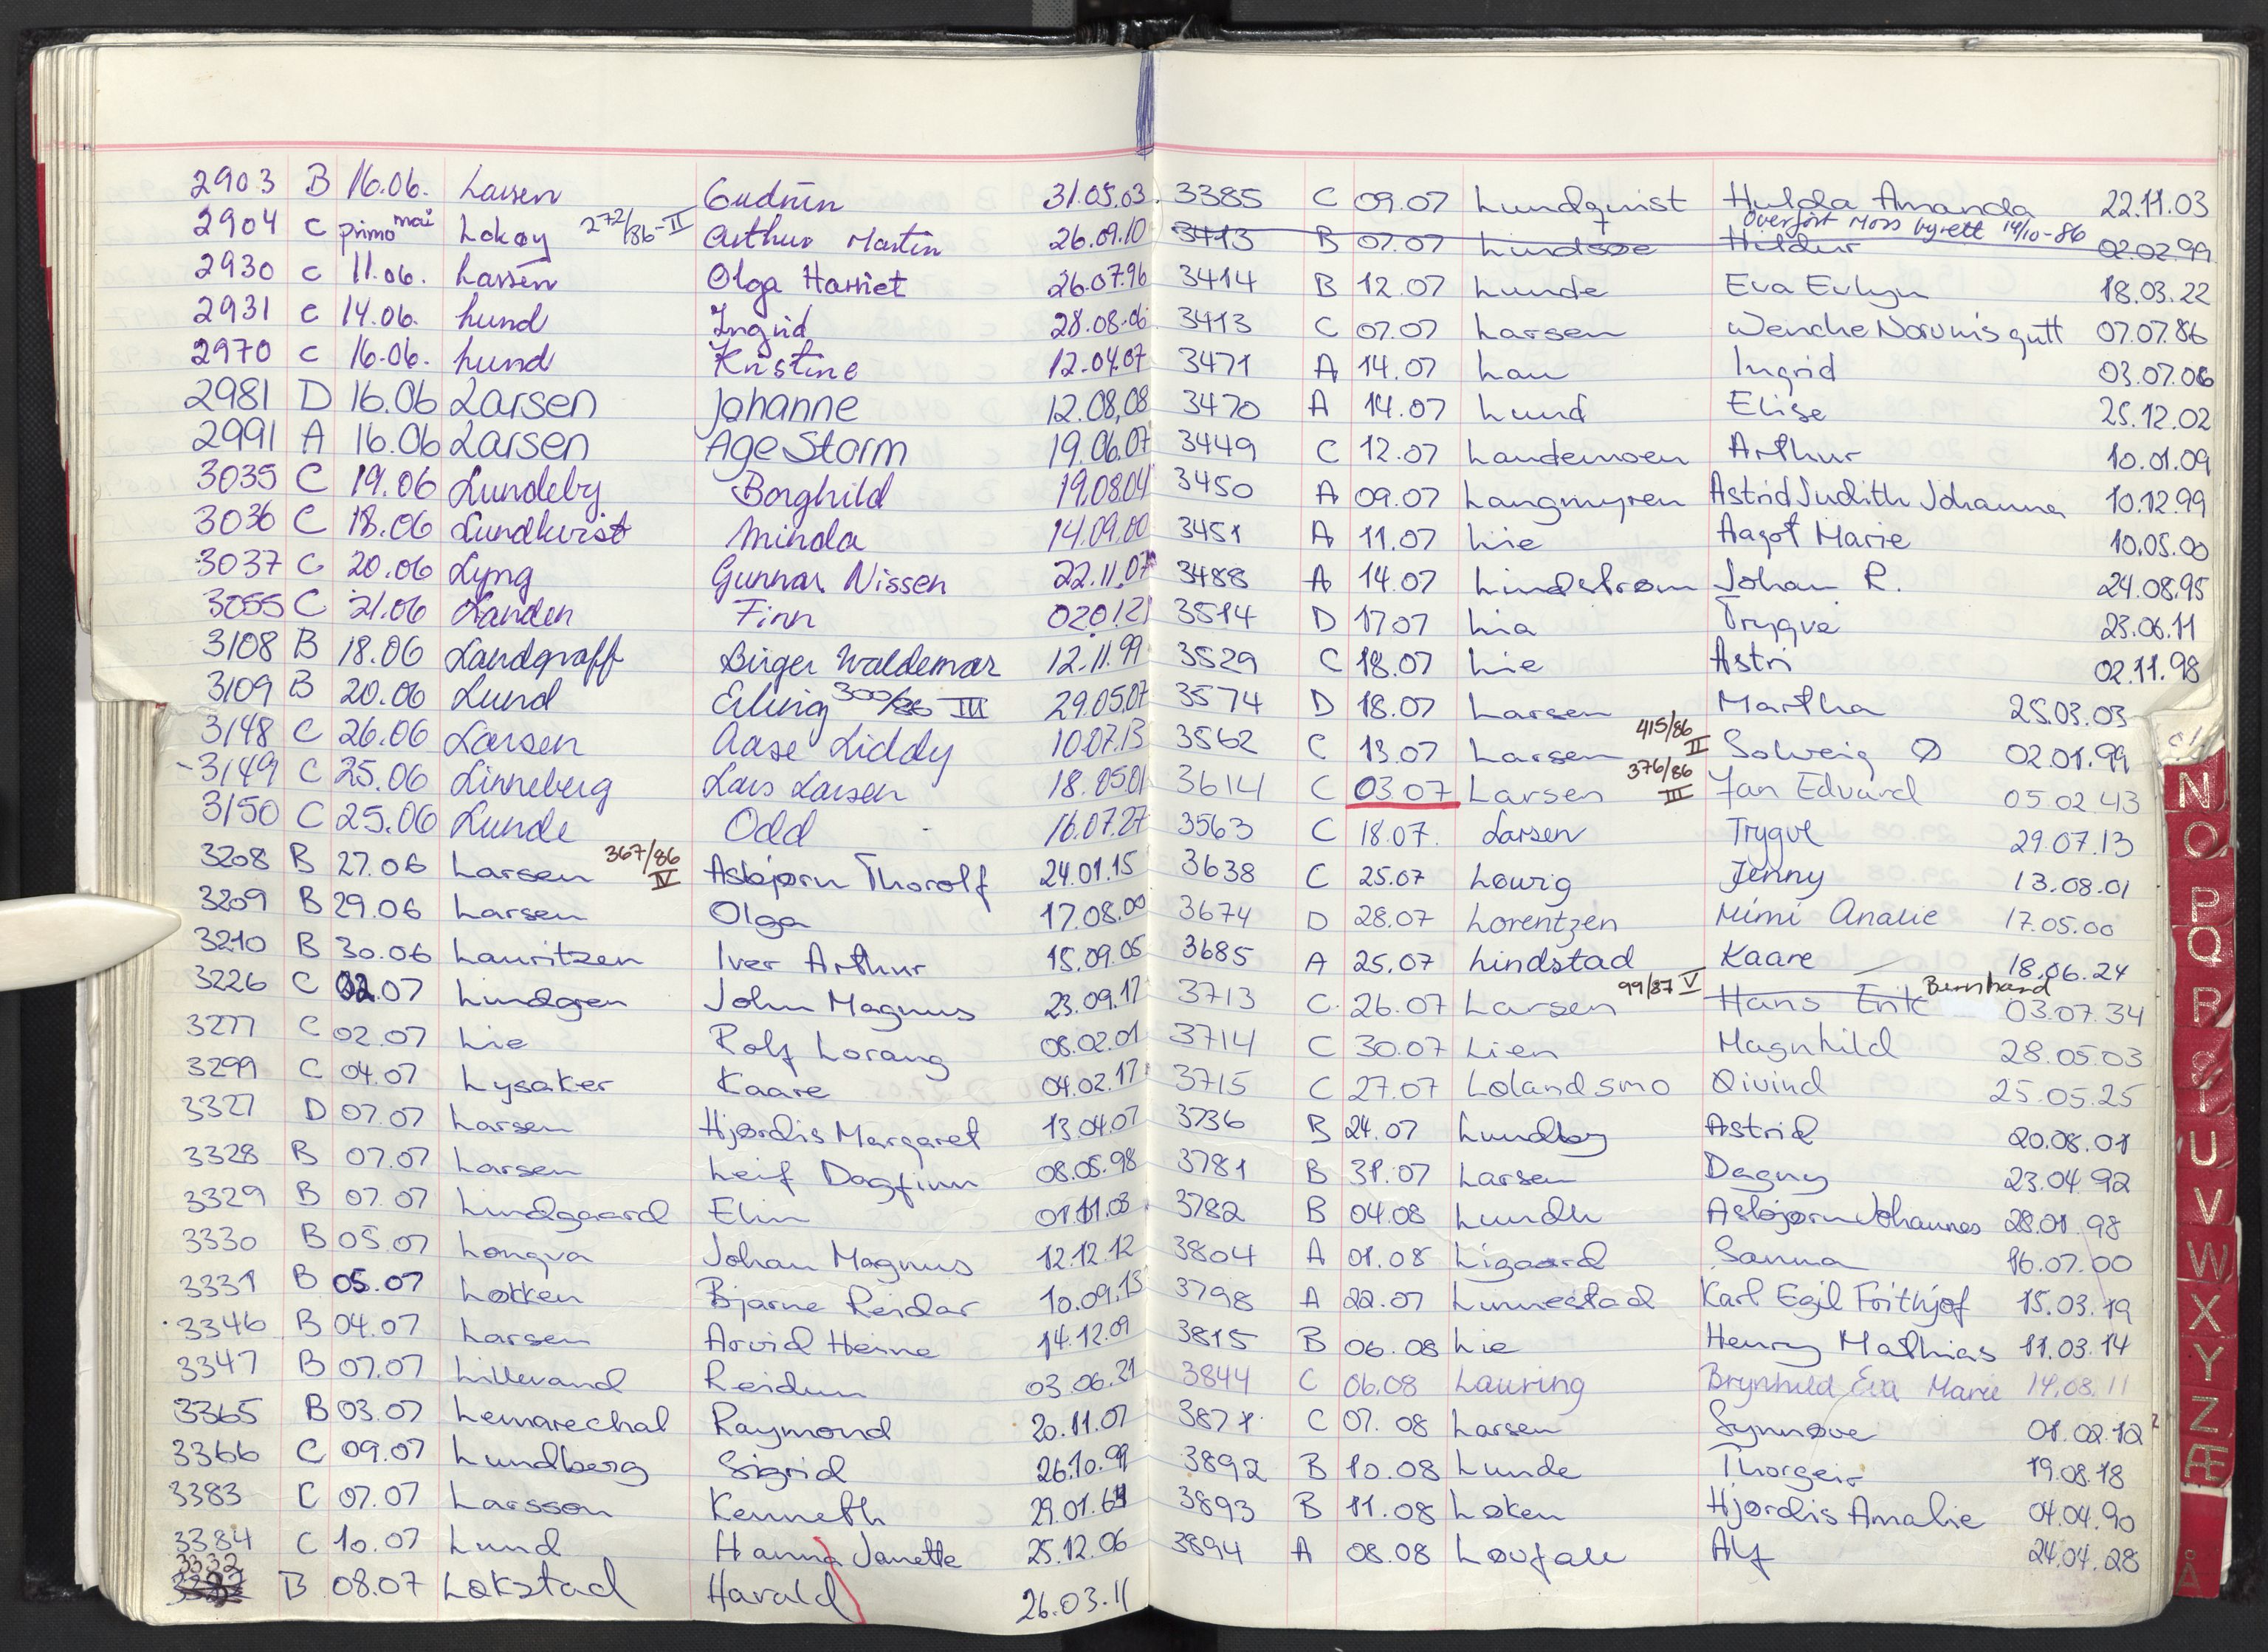 2903 B 16.06. Larsen Gudrun 31.05.03.
2904 C primo mai Lokøy 272/86-II Arthur Martin 26.09.10
2930 C 11.06. Larsen Olga Harriet 26.07.96
2931 C 14.06. Lund Ingrid 28.08.06
2970 C 16.06. Lund Kristine 12.04.07
2981 D 16.06 Larsen Johanne 12.08,08
2991 A 16.06 Larsen Age Storm 19.06.07
3035 C 19.06 Lundeby Borghild 19.08.04
3036 C 18.06 Lundkvist Minda 14.09.00
3037 C 20.06 Lyng Gunnar Nissen 22.11.07
3055 C 21.06 Landen Finn 020121
3108 B 18.06 Landgraff Birger Waldemar 12.11.99
3109 B 20.06 Lund Erling 300/86 III 29.05.07
3148 C 26.06 Larsen Aase Liddy 10.07.13
3149 C 25.06 Linneberg Lars Larsen 18.05.01
3150 C 25.06 Lunde Odd 16.07.27
3208 B 27.06 Larsen 367/86 IV Asbjørn Thorolf 24.01.15
3209 B 29.06 Larsen Olga 17.08.00
3210 B 30.06 Lauritzen Iver Arthur 15.09.05
3226 C 02.07 Lindgren John Magnus 23.09.17
3277 C 02.07 Lie Rolf Lorang 08.02.01
3299 C 04.07 Lysaker Kaare 04.02.17
3327 D 07.07 Larsen Hjørdis Margaret 13.04.07
3328 B 07.07 Larsen Leif Dagfinn 08.05.98
3329 B 07.07 Lindgaard Elin 01.11.03
3330 B 05.07 Longva Johan Magnus 12.12.12
3331 B 05.07 Løkken Bjarne Reidar 10.09.15
3346 B 04.07 Larsen Arvid Heine 14.12.09
3347 B 07.07 Lillevand Reidun 03.06.21
3365 B 03.07 Lemarechal Raymond 20.11.07
3366 C 09.07 Lundberg Sigrid 26.10.99
3383 C 07.07 Larsson Kenneth 29.01.64
3384 C 10.07 Lund Hanna Janette 25.12.06
3332 B 08.07 Løkstad Harald 26.03.11
3385 C 09.07 Lundquist Hulda Amanda 22.11.03
Overført Moss byrett 14/10-86
3413 B 07.07 Lindsøe Hildur 02.02.99
3414 B 12.07 Lunde Eva Evlyn 18.03.22
3413 C 07.07 Larsen Wenche Norunis gutt 07.07.86
3471 A 14.07 Lau Ingrid 03.07.06
3470 A 14.07 Lund Elise 25.12.02
3449 C 12.07 Landemoen Arthur 10.01.09
3450 A 09.07 Langmyren Astrid Judith Johanna 10.12.99
3451 A 11.07 Lie Aagot Marie 10.05.00
3488 A 14.07 Lindstrøm Johan R. 24.08.95
3514 D 17.07 Lia Trygve 23.06.11
3529 C 18.07 Lie Astri 02.11.98
3574 D 18.07 Larsen Martha 25.03.03
3562 C 13.07 Larsen 415/86 II Solveig Ø 02.01.99
3614 C 03.07 Larsen 376/86 III Jan Edvard 05.02.43
3563 C 18.07. Larsen Trygve 29.07.13
3638 C 25.07 Løwig Jenny 13.08.01
3674 D 28.07 Lorentzen Mimi Analie 17.05.00
3685 A 25.07 Lindstad Kaare 18.06.24
3713 C 26.07 Larsen 99/87 V Hans Erik Bernhard 03.07.34
3714 C 30.07 Lien Magnhild 28.05.03
3715 C 27.07 Lølandsmo Øivind 25.05.25
3736 B 24.07 Lundby Astrid 20.08.01
3781 B 31.07 Larsen Dagny 23.04.92
3782 B 04.08 Lundh Asbjørn Johannes 28.01.98
3804 A 01.08 Ligaard Sanna 16.07.00
3798 A 22.07 Linnestad Karl Egil Frithjof 15.03.19
3815 B 06.08 Lie Henry Mathias 11.03.14
3844 C 06.08 Lauring Brynhild Eva Marie 14.08.11
3871 C 07.08 Larsen Synnøve 01.02.12
3892 B 10.08 Lunde Thorgeir 19.08.18
3893 B 11.08 Løken Hjørdis Amalie 04.04.90
3894 A 08.08 Løvfall Alf 24.04.28
N
O
P
Q
R
S
T
U
V
W
X
Y
Z
Æ
Å